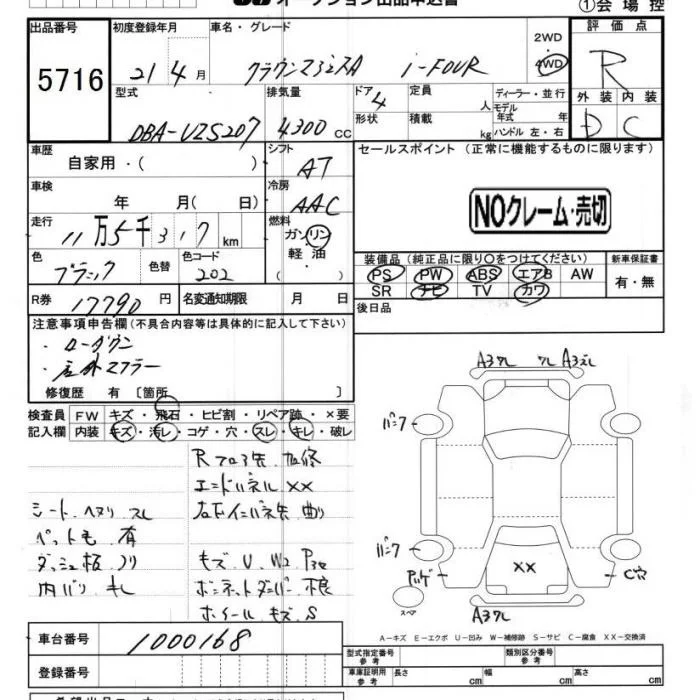 オークション出品申込書
①会場控
出品番号
5716
初度登録年月
21 4 月
車名・グレード
クラウンマジェスタ i-FOUR
2WD
4WD
評価点
R
型式
DBA-UZS207
排気量
4300 cc
ドア
4
形状
定員
人
積載
kg
ディーラー・並行
モデル年式 年
ハンドル 左・右
外装 内装
D C
車歴
自家用・( )
シフト
AT
セールスポイント(正常に機能するものに限ります)
NOクレーム・売切
車検
年 月( 日)
冷房
AAC
走行
11万5千317 km
燃料
ガソリン
軽油
( )
色
ブラック
色替
色コード
202
装備品(純正品に限り○をつけてください)
PS PW ABS エアB AW
SR ナビ TV カワ
新車保証書
有・無
R券
17790 円
名変通知期限 月 日
後日品
注意事項申告欄(不具合内容等は具体的に記入して下さい)
・ローダウン
・社外マフラー
修復歴 有〔箇所 〕
検査員
記入欄
FW キズ・飛石・ヒビ割・リペア跡・×要
内装 キズ・汚レ・コゲ・穴・スレ・キレ・破レ
エンドパネル XX
シート ヘタリ スレ
ペット毛 有
ダッシュ板 ノリ
内バリ キレ
キズ U W2 P3ヶ
ボンネットダンパー 不良
ホイール キズ S
パンク
パンク
XX
C穴
スペア
A-キズ E-エクボ U-凹み W-補修跡 S-サビ C-腐食 XX-交換済
車台番号
1000168
登録番号
型式指定番号
参考
類別区分番号
参考
車庫証明用
参考
長さ cm
幅 cm
高さ cm